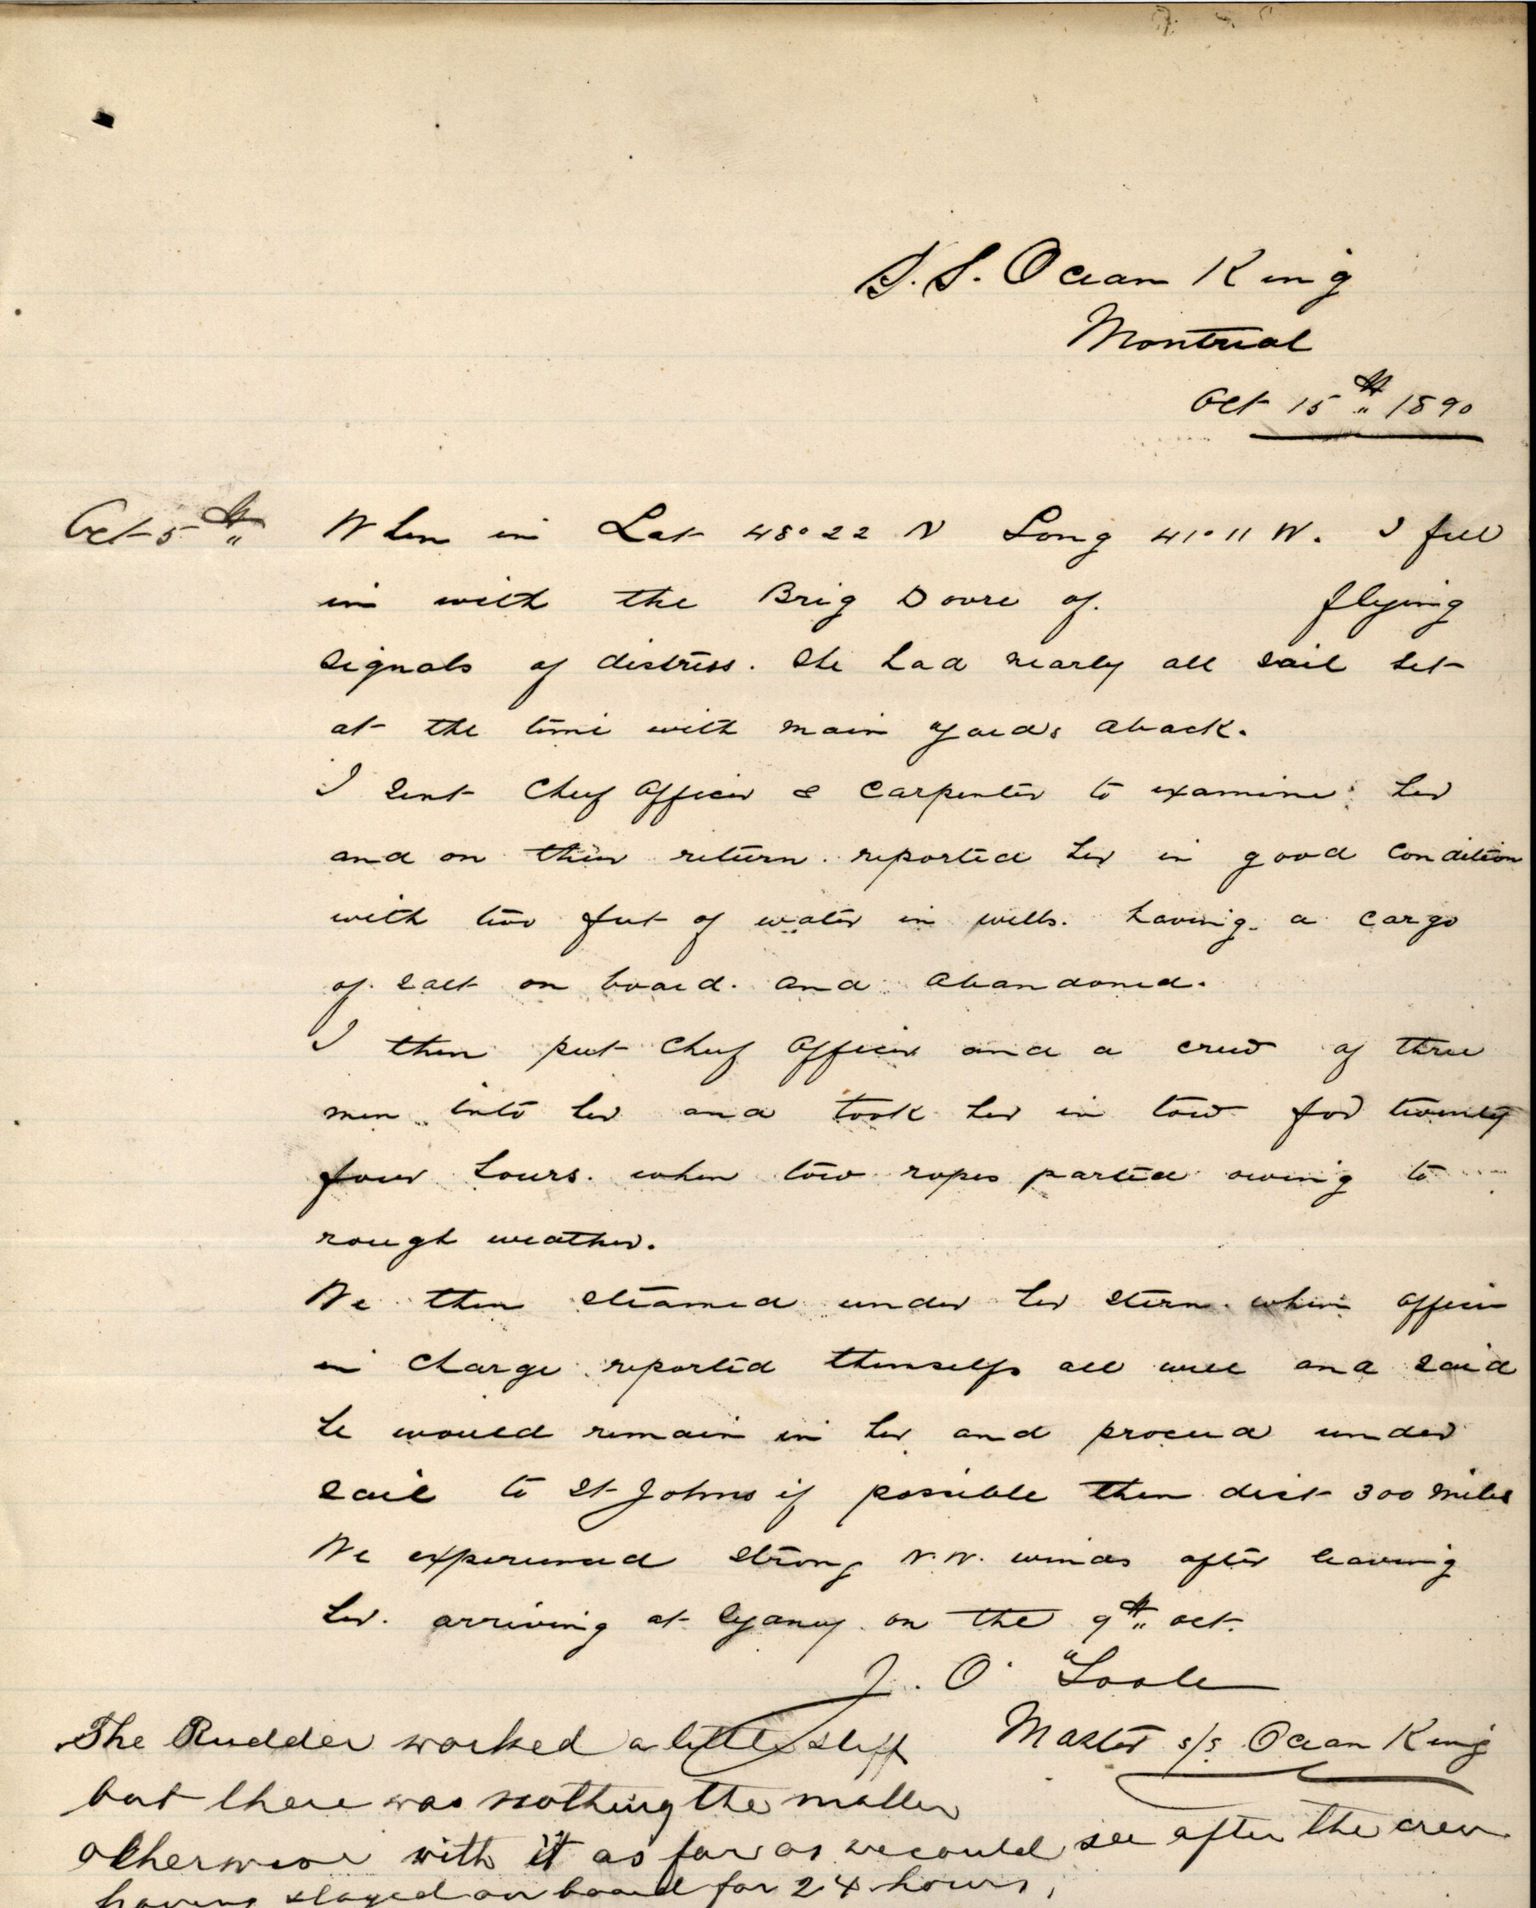 S.S. Ocean King
Montreal
Oct 15th 1890
Oct 5th When in Lat 48°22 N Long 41°11 W. I fell
in with the Brig Dovre of. flying
signals of distress. She had nearly all sail set
at the time with main yards aback.
I sent Chief Officer & Carpenter to examine her
and on their return. reported her in good condition
with two feet of water in wells. having. a cargo
of. salt on board. and abandoned.
I then put Chief Officer and a crew of three
men into her and took her in tow for twenty
four hours. when tow ropes parted owing to
rough weather.
We then steamed under her stern. when officer
in charge reported themselfs all well and said
he would remain in her and proceed under
sail to St Johns if possible then dist 300 miles
We experienced strong N.W. winds after leaving
her. arriving at on the 9th Oct.
J. O'Toole
Master s/s. Ocean King
The Rudder worked a little stiff
but there was nothing the matter
otherwise with it as far as we could see after the crew
having stayed on board for 24 hours.